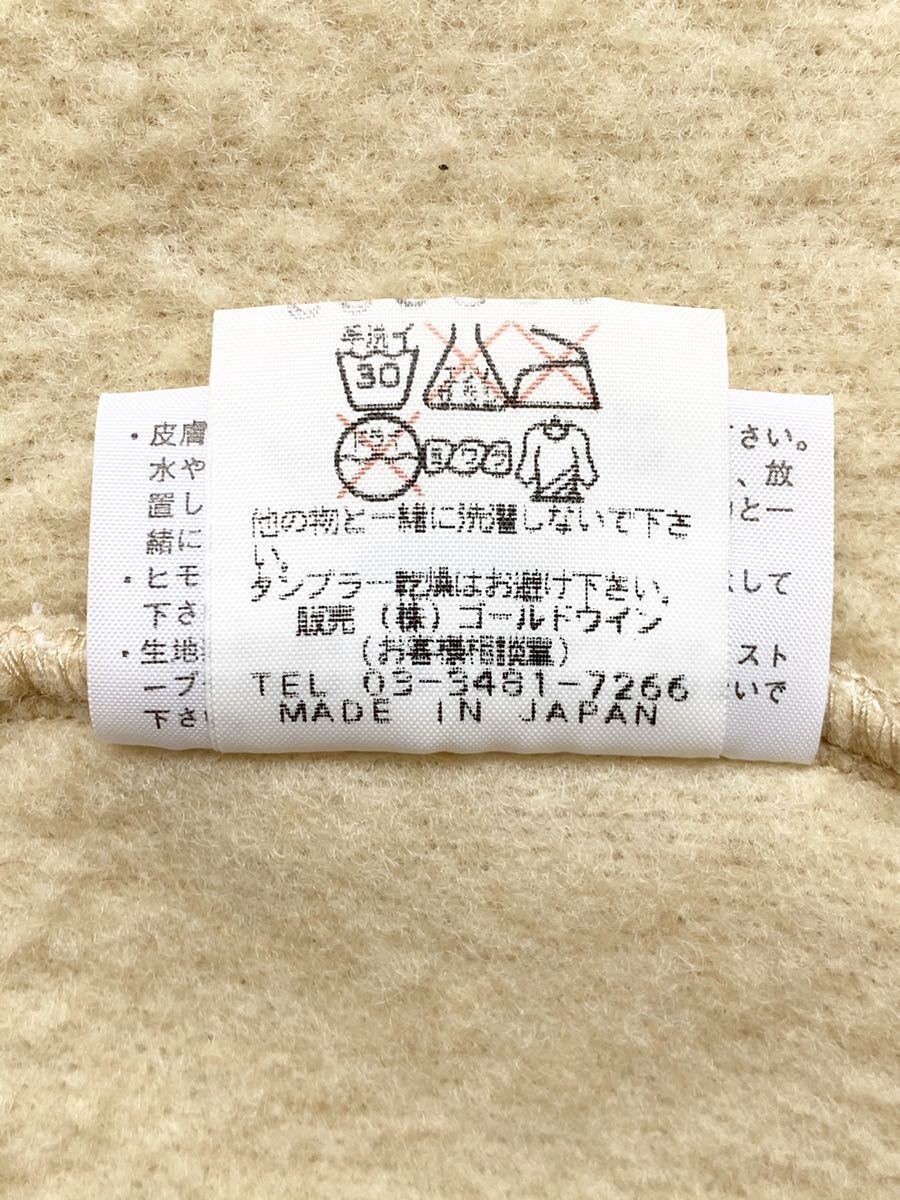 手洗イ
30
ドライ
ヨワク
他の物と一緒に洗濯しないで下さ
い。
タンブラー乾燥はお避け下さい。
販売 (株)ゴールドウイン
(お客様相談室)
TEL 03-3481-7266
MADE IN JAPAN
・皮膚
さい。
水や
、放
置し
と一
緒に
・ヒモ
して
下さ
・生地
スト
ープ
いで
下さい